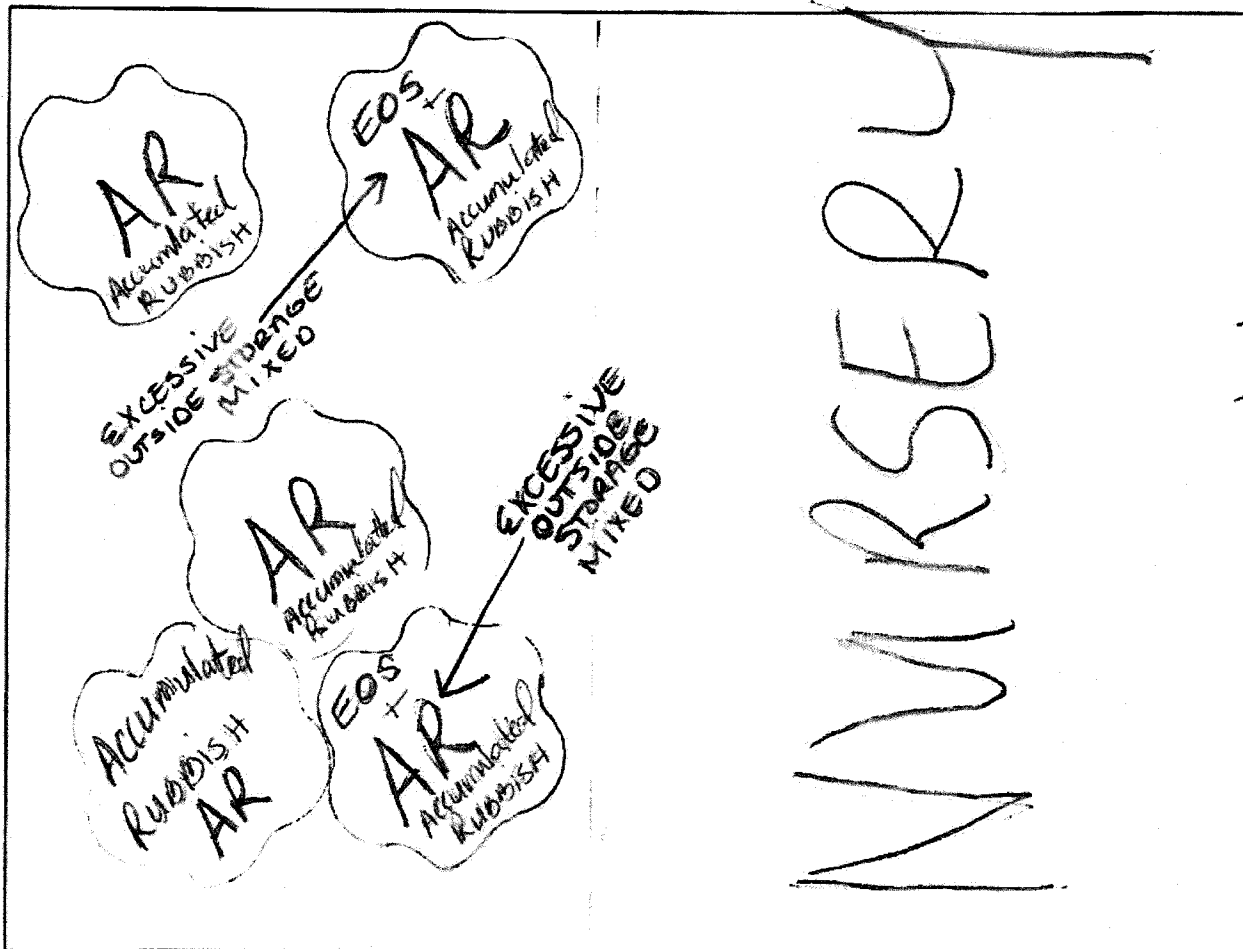 AR
Accumlated
RUBBISH
EOS
+
AR
Accumulated
RUBBISH
EXCESSIVE
OUTSIDE STORAGE
MIXED
AR
Accumulated
RUBBISH
EXCESSIVE
OUTSIDE
STORAGE
MIXED
Accumulated
RUBBISH
AR
EOS
+
AR
Accumulated
RUBBISH
NURSERY